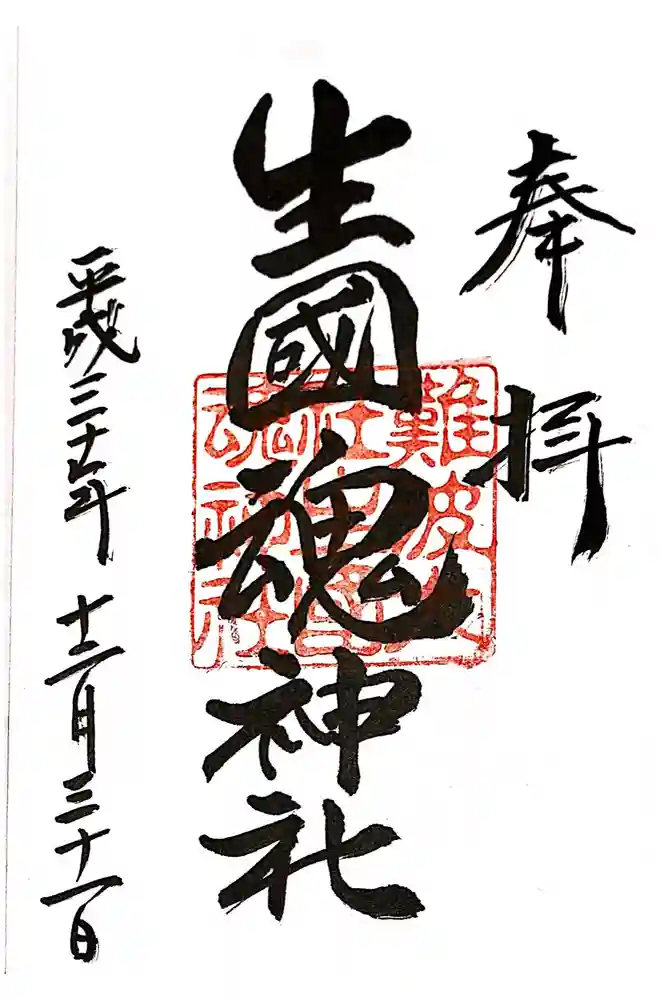 奉拝
生國魂神社
難波大
社生國
魂神社
平成三十年十二月三十一日